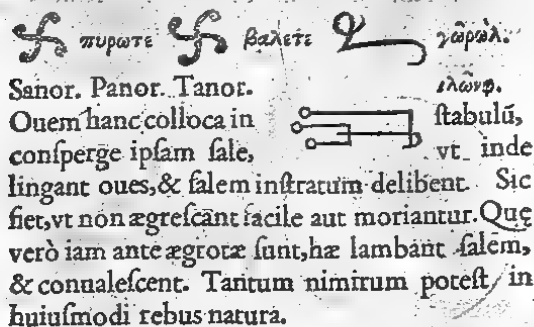 πυρωτε βαλετε γῶρωλ.
Sanor. Panor. Tanor. ιλῶνφ.
Ouem hanc colloca in ſtabulū,
conſperge ipſam ſale, vt inde
lingant oues, & ſalem inſtratum delibent. Sic
fiet, vt non ægreſcãnt facile aut moriantur. Quę
verò iam ante ægrotæ ſunt, hæ lambãnt ſalem,
& conualeſcent. Tantum nimirum poteſt in
huiuſmodi rebus natura.